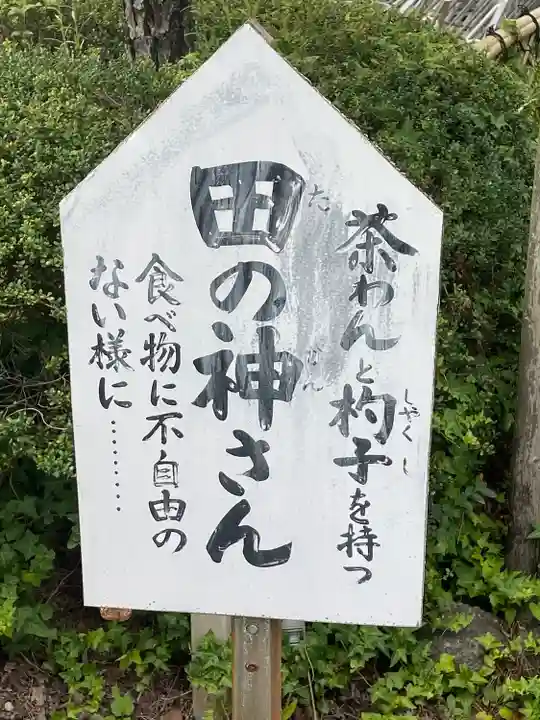 茶わんと杓子を持つ
しゃくし
田の神さん
た
食べ物に不自由の
ない様に………